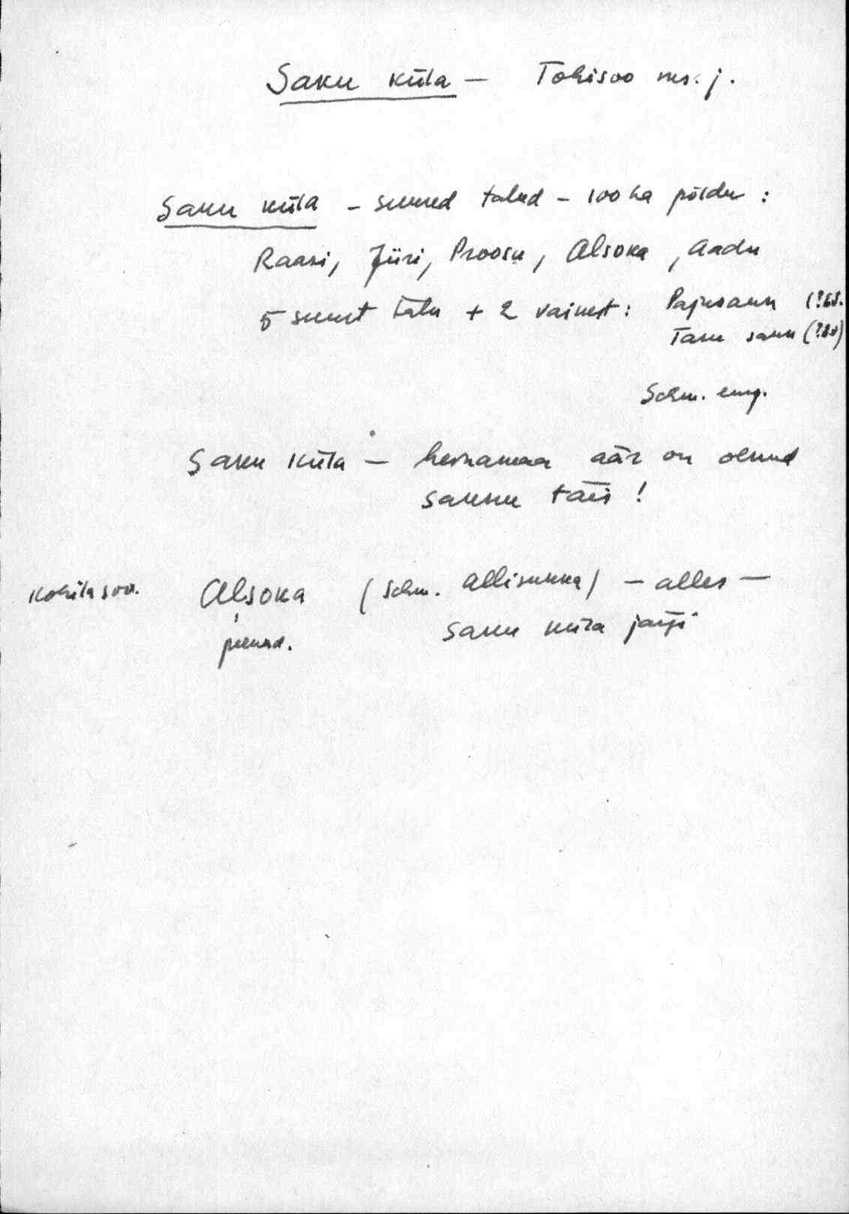 Saku küla — Tohisoo ms. j.
Saku küla – suured talud – 100 ha põldu :
Raasi, Jüri, Proosu, Alsoka, Aadu
5 suurt talu + 2 väikest : Pajusauna
Taru sauna
Schm.
Saku küla — heinamaa äär on olnud
saunu täis !
Kohila soo. Alsoka (Schm. allisukka) — alles —
Saku küla järgi